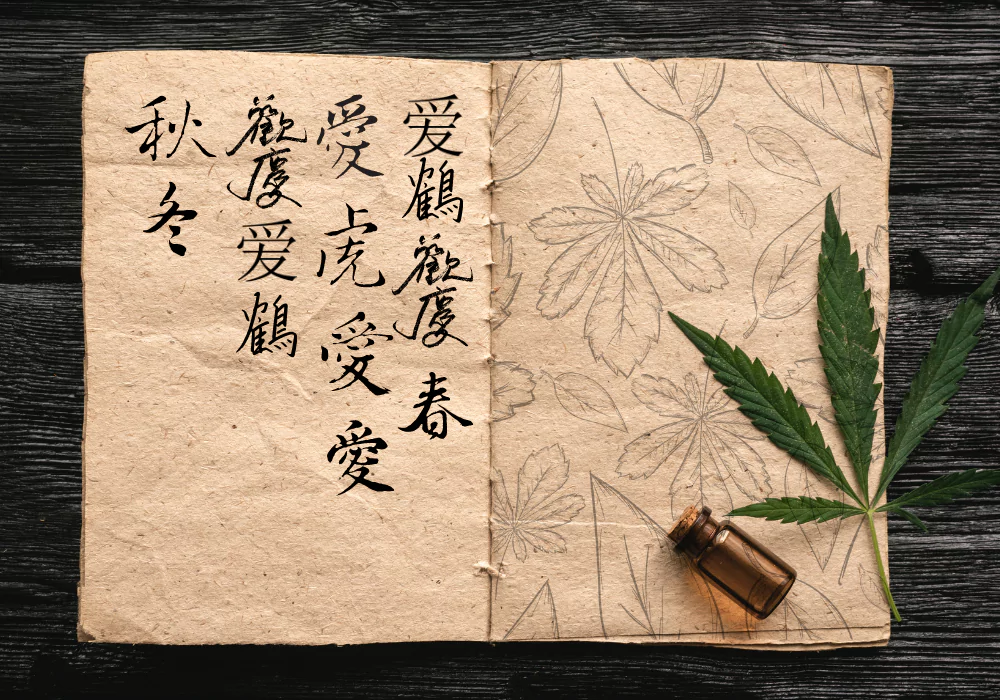 爱鶴歡慶春
愛虎愛愛
歡慶爱鶴
秋冬